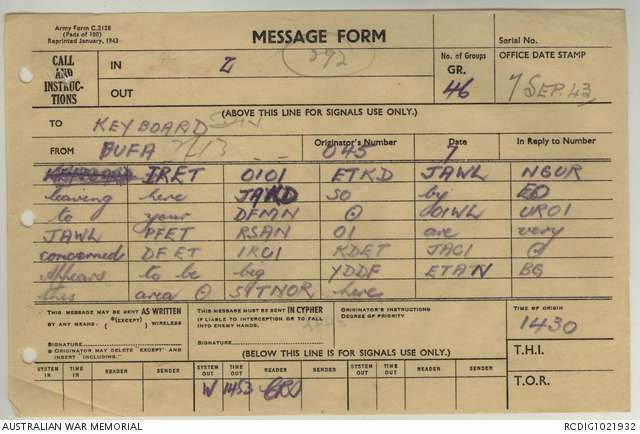 Army Form C.2128
(Pads of 100)
Reprinted January, 1943
MESSAGE FORM
292
Serial No.
CALL AND INSTRUC-TIONS
IN Z
No. of Groups GR. 46
OFFICE DATE STAMP
7 SEP. 43
OUT
(ABOVE THIS LINE FOR SIGNALS USE ONLY.)
TO KEYBOARD
FROM BUFA Originator's Number 045 Date 7 In Reply to Number
KEYBOARD IRET 0101 ETKD JAWL NGUR
leaving here JAKD so by EO
to your DFMN ⊙ UROI
JAWL PFET RSAN 01 are very
concerned DFET IROI KDET JACI ⊙
Appears to be big YDDF ETAN BG
this area ⊙ SITNOR here
THIS MESSAGE MAY BE SENT AS WRITTEN BY ANY MEANS. (EXCEPT) WIRELESS
THIS MESSAGE MUST BE SENT IN CYPHER IF LIABLE TO INTERCEPTION OR TO FALL INTO ENEMY HANDS.
ORIGINATOR'S INSTRUCTIONS DEGREE OF PRIORITY
TIME OF ORIGIN
1430
SIGNATURE
SIGNATURE
ORIGINATOR MAY DELETE "EXCEPT" AND INSERT "INCLUDING."
(BELOW THIS LINE IS FOR SIGNALS USE ONLY.)
T.H.I.
SYSTEM IN TIME IN READER SENDER SYSTEM OUT TIME OUT READER SENDER SYSTEM OUT TIME OUT READER SENDER
W 1453
T.O.R.
AUSTRALIAN WAR MEMORIAL
RCDIG1021932